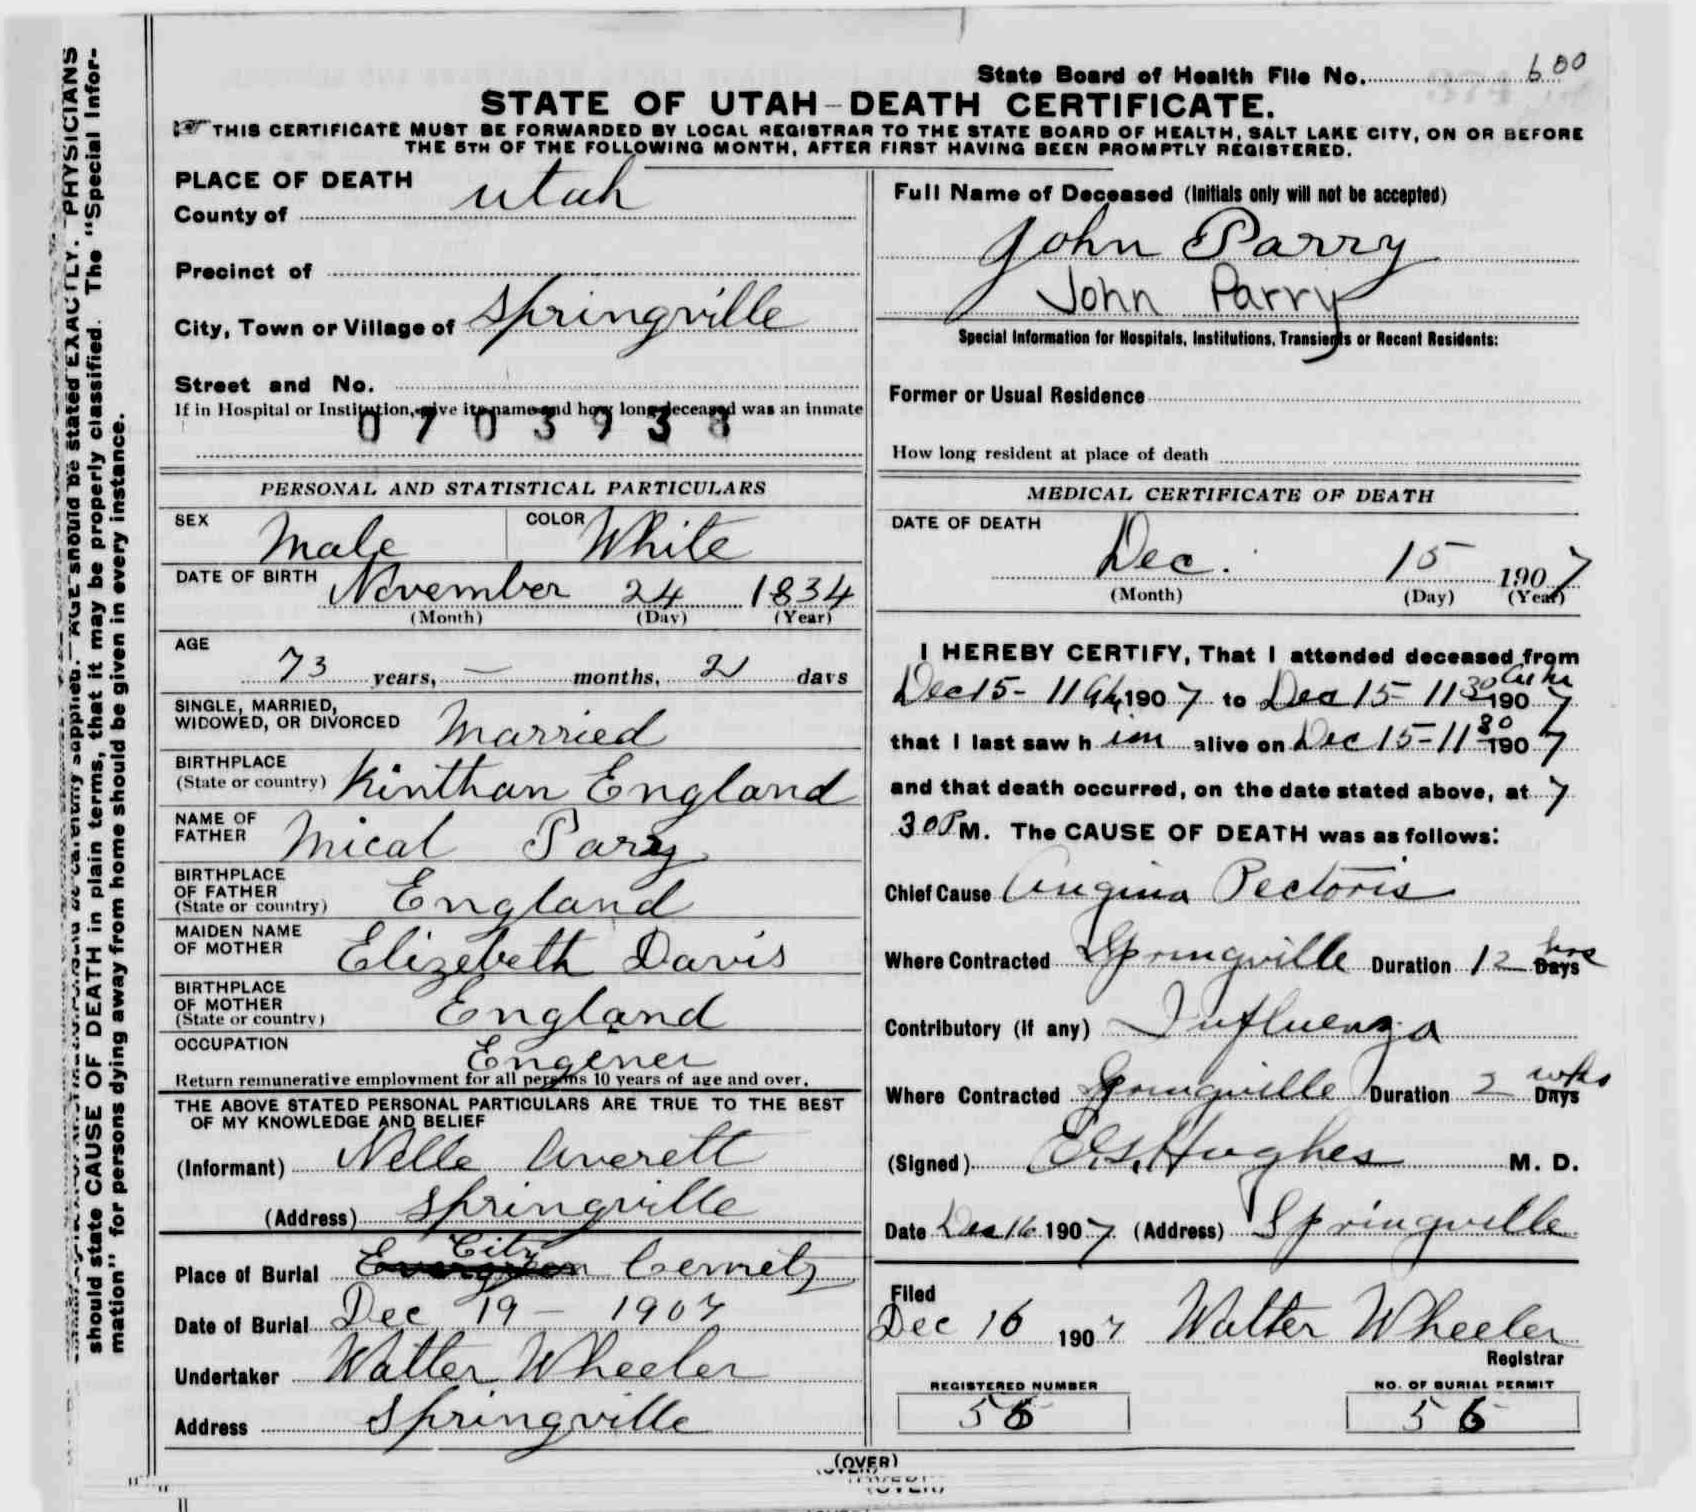 State Board of Health File No. 600
STATE OF UTAH - DEATH CERTIFICATE.
THIS CERTIFICATE MUST BE FORWARDED BY LOCAL REGISTRAR TO THE STATE BOARD OF HEALTH, SALT LAKE CITY, ON OR BEFORE
THE 5TH OF THE FOLLOWING MONTH, AFTER FIRST HAVING BEEN PROMPTLY REGISTERED.
PLACE OF DEATH
County of Utah
Precinct of
City, Town or Village of Springville
Street and No.
If in Hospital or Institution, give its name and how long deceased was an inmate
0703938
PERSONAL AND STATISTICAL PARTICULARS
SEX Male COLOR White
DATE OF BIRTH November 24 1834
(Month) (Day) (Year)
AGE
73 years, — months, 21 days
SINGLE, MARRIED,
WIDOWED, OR DIVORCED Married
BIRTHPLACE
(State or country) Kinthan England
NAME OF
FATHER Mical Parry
BIRTHPLACE
OF FATHER
(State or country) England
MAIDEN NAME
OF MOTHER Elizebeth Davis
BIRTHPLACE
OF MOTHER
(State or country) England
OCCUPATION Engener
Return remunerative employment for all persons 10 years of age and over.
THE ABOVE STATED PERSONAL PARTICULARS ARE TRUE TO THE BEST
OF MY KNOWLEDGE AND BELIEF
(Informant) Nelle Averett
(Address) Springville
Place of Burial Evergreen City Cemety
Date of Burial Dec 19 - 1907
Undertaker Walter Wheeler
Address Springville
Full Name of Deceased (Initials only will not be accepted)
John Parry
John Parry
Special Information for Hospitals, Institutions, Transients or Recent Residents:
Former or Usual Residence
How long resident at place of death
MEDICAL CERTIFICATE OF DEATH
DATE OF DEATH
Dec. 15 1907
(Month) (Day) (Year)
I HEREBY CERTIFY, That I attended deceased from
Dec 15 - 11 1907 to Dec 15 - 11 30 1907
that I last saw him alive on Dec 15 - 11 30 1907
and that death occurred, on the date stated above, at 7
30 P M. The CAUSE OF DEATH was as follows:
Chief Cause Angina Pectoris
Where Contracted Springville Duration 12 hrs Days
Contributory (if any) Influenza
Where Contracted Springville Duration 2 wks Days
(Signed) E.G. Hughes M. D.
Date Dec 16 1907 (Address) Springville
Filed
Dec 16 1907 Walter Wheeler
Registrar
REGISTERED NUMBER
56
NO. OF BURIAL PERMIT
56
(OVER)
should state CAUSE OF DEATH in plain terms, that it may be properly classified. The "Special Infor-
mation" for persons dying away from home should be given in every instance.
AGE should be stated EXACTLY. PHYSICIANS